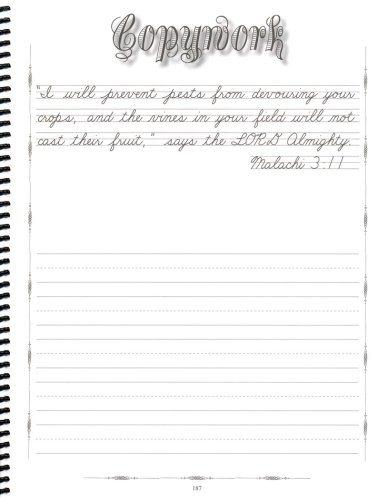 Copywork
"I will prevent pests from devouring your
crops, and the vines in your field will not
cast their fruit," says the LORD Almighty.
Malachi 3:11
187